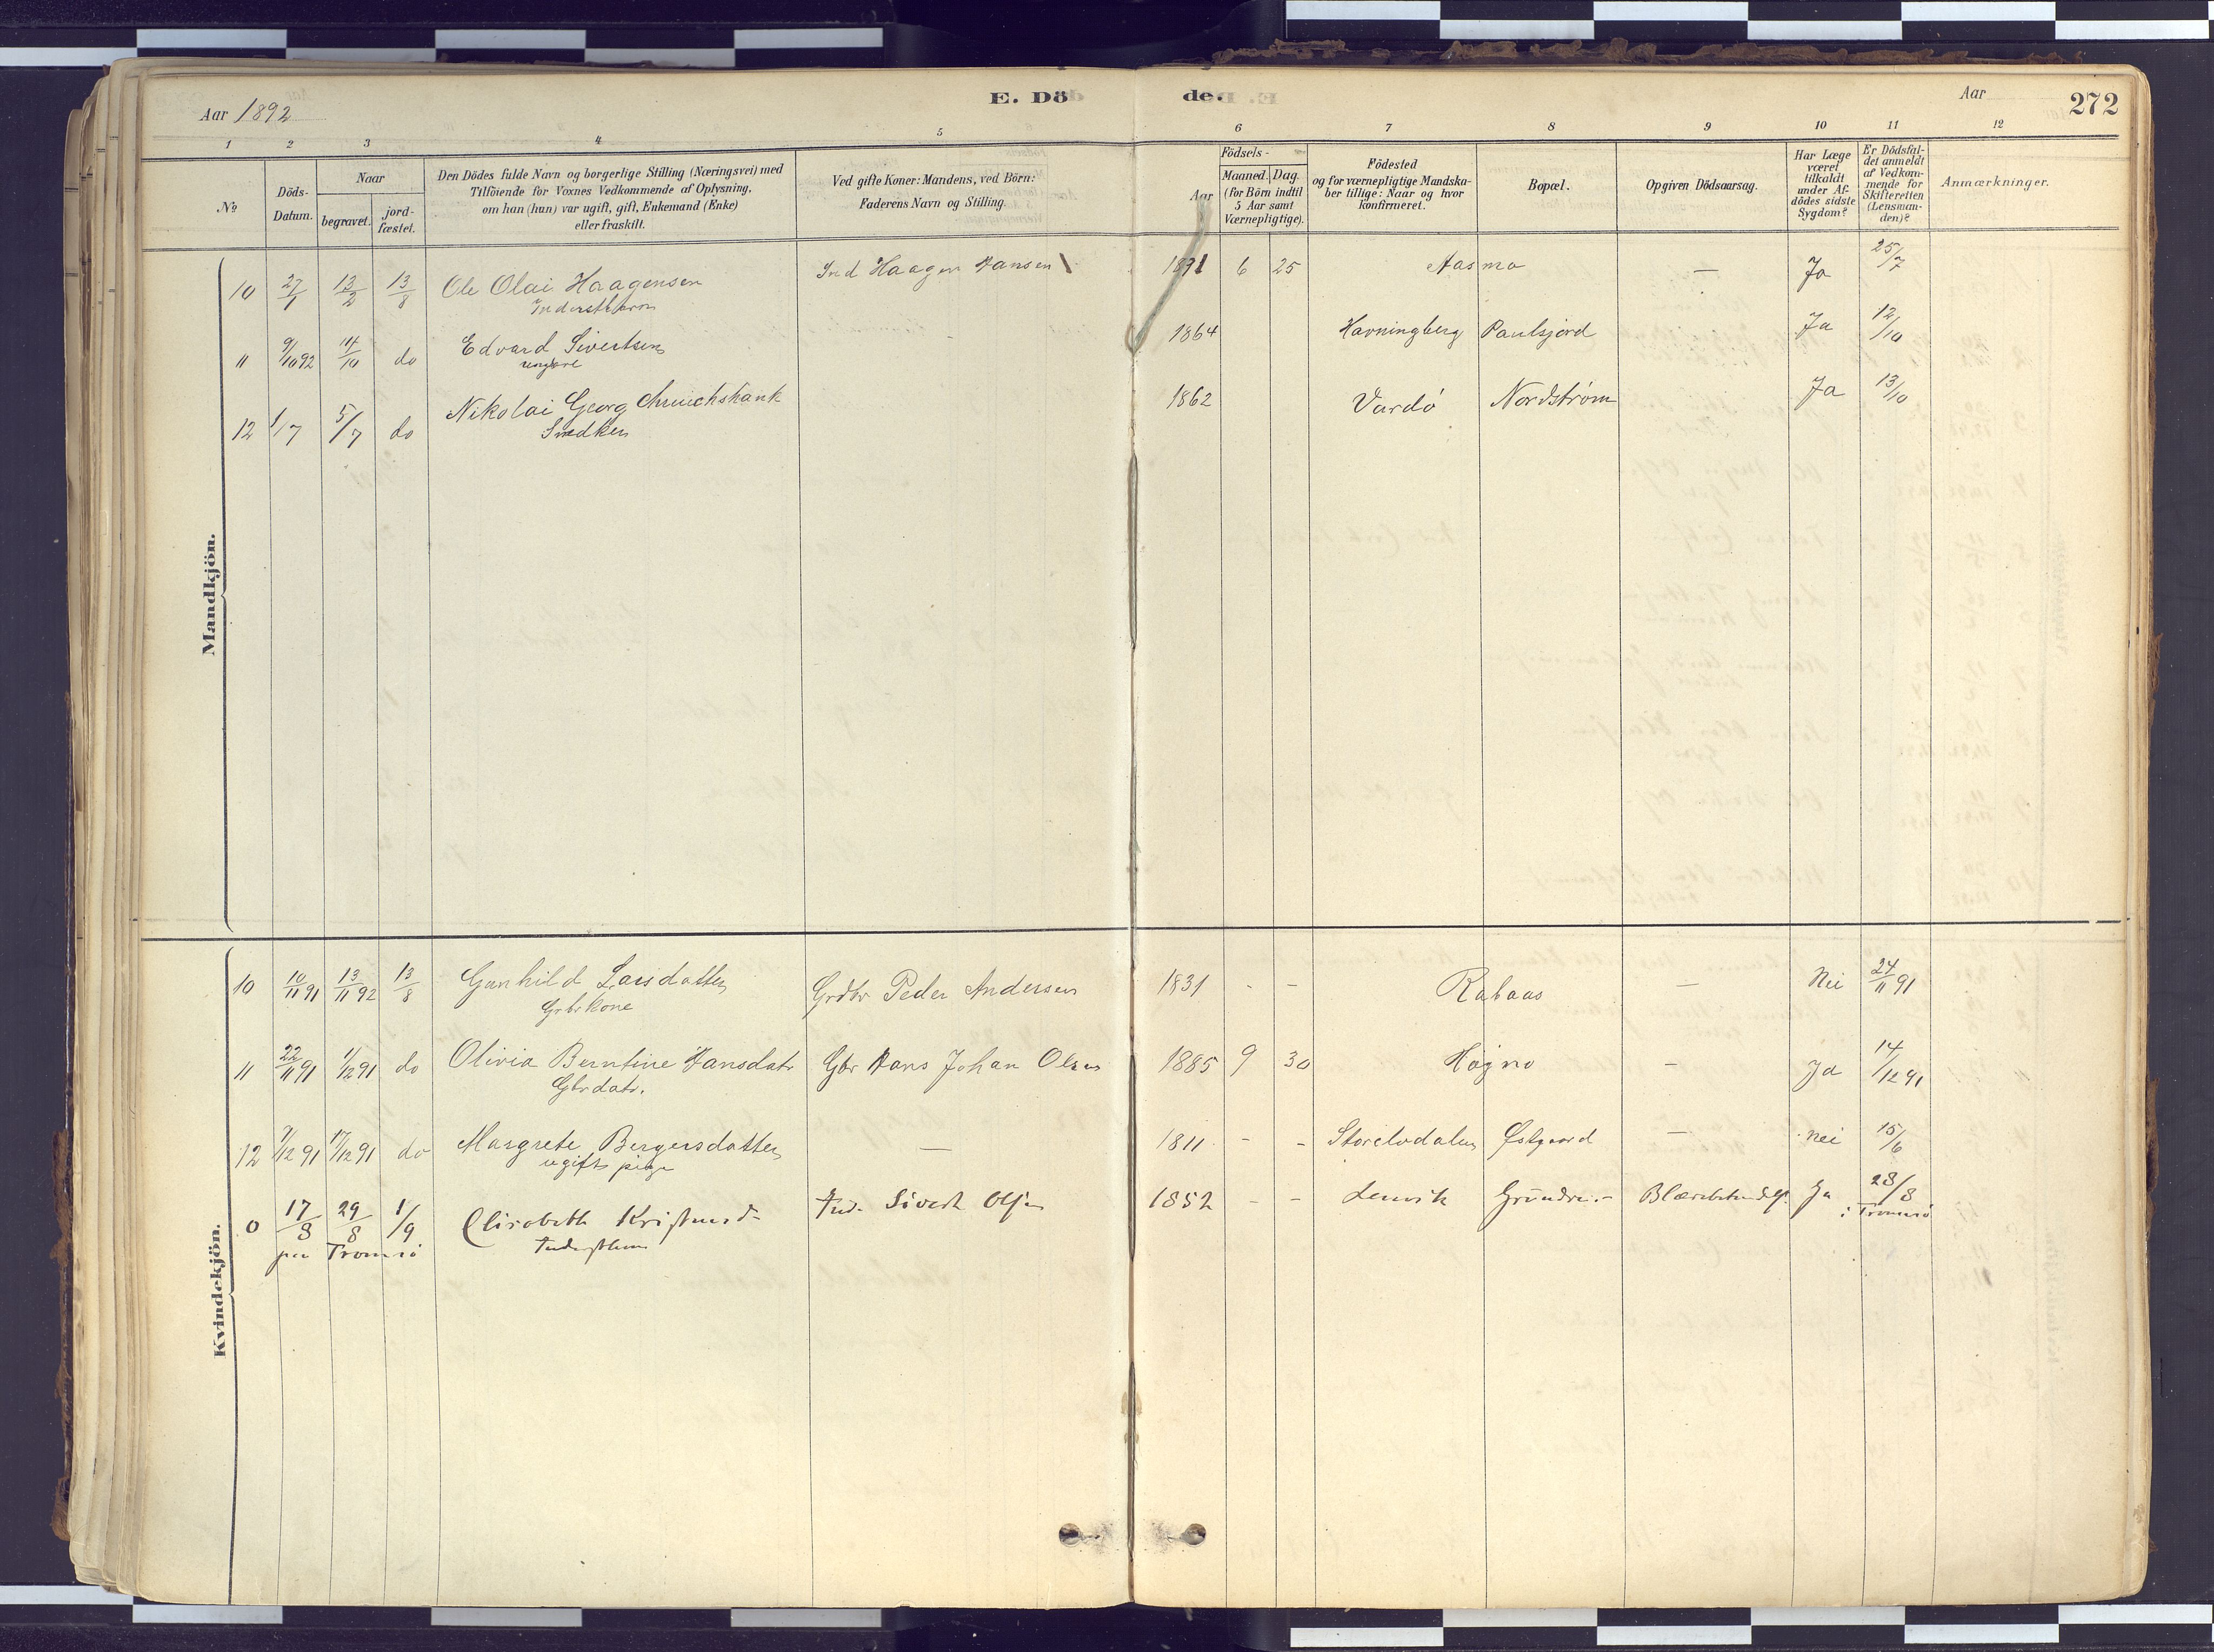 Aar 1892
E. Döde.
Aar
272
1 2 3 4 5 6 7 8 9 10 11 12
No
Döds-Datum.
Naar
begravet.
jord-fæstet.
Den Dödes fulde Navn og borgerlige Stilling (Næringsvei) med
Tilföiende for Voxnes Vedkommende af Oplysning,
om han (hun) var ugift, gift, Enkemand (Enke)
eller fraskilt.
Ved gifte Koner: Mandens, ved Börn:
Faderens Navn og Stilling.
Födsels-
Aar
Maaned. Dag.
(for Börn indtil
5 Aar samt
Værnepligtige).
Födested
og for værnepligtige Mandska-
ber tillige: Naar og hvor
konfirmeret.
Bopæl.
Opgiven Dödsaarsag.
Har Læge
været
tilkaldt
under Af-
dödes sidste
Sygdom?
Er Dödsfal-
det anmeldt
af Vedkom-
mende for
Skifteretten
(Lensman-
den)?
Anmærkninger.
Mandkjön.
10 27/1 13/2 13/8 Ole Olai Haagensen Ind Haagen Hansen 1891 6 25 Aasmo — Ja 25/7
Inderstbarn
11 9/10 92 14/10 do Edvard Sivertsen 1864 Havningberg Paulsjord Ja 12/10
ungkarl
12 1/7 5/7 do Nikolai Georg 1862 Vardö Nordström Ja 13/10
Snedker
Kvindekjön.
10 10/11 91 13/11 92 13/8 Gunhild Larsdatter Grdbr Peder Andersen 1831 - - Rabaas — Nei 24/11 91
Grbrkone
11 22/11 91 1/12 91 do Olivia Berntine Hansdatr Gbr Hans Johan Olsen 1885 9 30 Högmo - Ja 14/12 91
Gbrdatr.
12 9/12 91 17/12 91 do Margrete Bergersdatter — 1811 - - Storelvdalen Østgaard — nei 15/6
ugift pige
0 17/8 29/8 1/9 Elisabeth Ind. Sivert Olsen 1852 - - Lenvik Ja 23/8
Tromsö i Tromsö